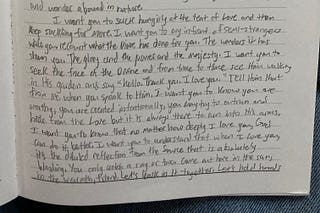 and wonder abound in nature.
I want you to suck hungrily at the teat of Love and then
keep suckling for more. I want you to cry infant of
while you recount what the Divine has done for you. The wonders it has
shown you. The glory and the power and the majesty. I want you to
seek the face of the Divine and from time to time see Him walking
in His garden and say "Hello. Thank you. I love you." Tell Him that
than me when you speak to Him. I want you to know you are
worthy, you are created intentionally, you long to
hide from the Love but it is always there to run into His arms.
I want you to know that no matter how deeply I love you, God
can do it better. I want you to understand that when I love you,
it's the diluted reflection from the source that is absolutely
blinding. You only catch a ray or two. Come out here in the sun,
in the warmth, friend. Let's bask in it together. Let's hold hands